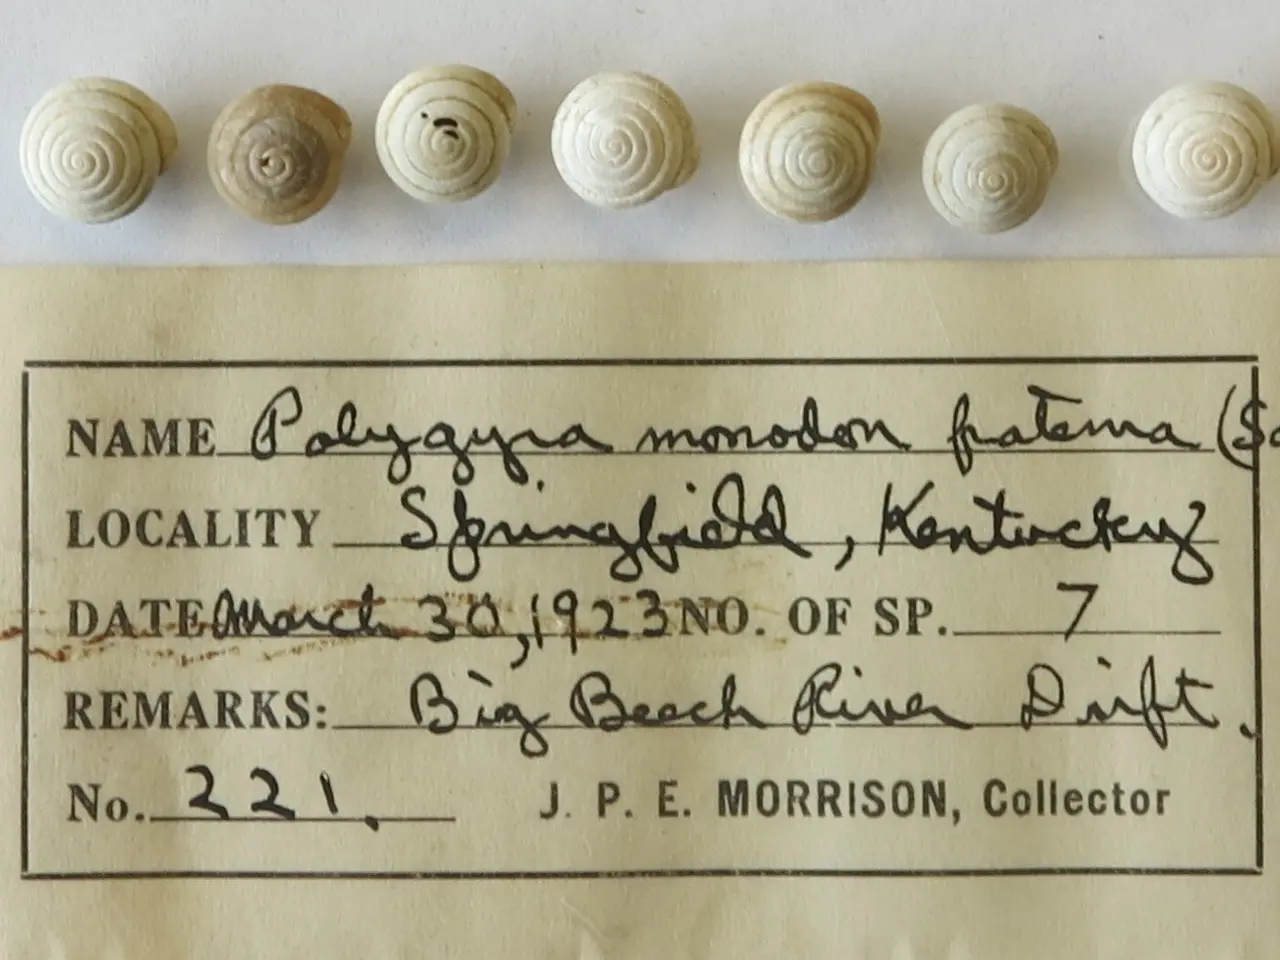 NAME Polygyra monodon fraterna (Sa
LOCALITY Springfield, Kentucky
DATE March 30, 1923 NO. OF SP. 7
REMARKS: Big Beech River Drift.
No. 221. J. P. E. MORRISON, Collector